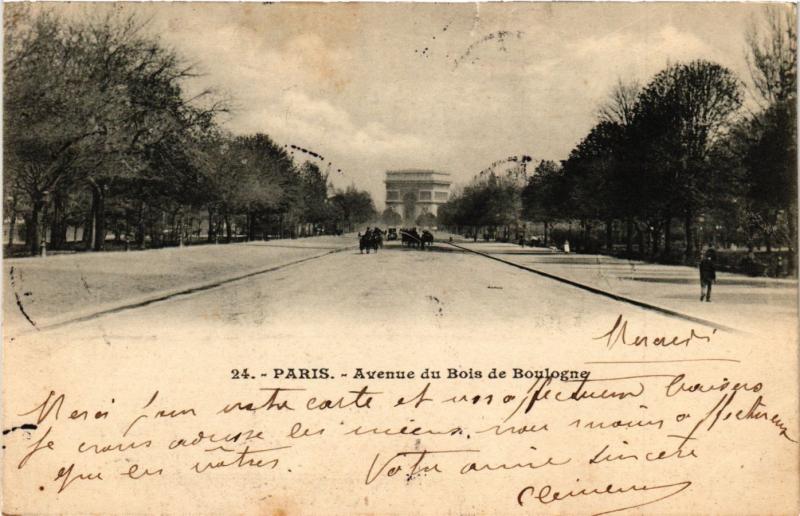 Mercredi
24. - PARIS. - Avenue du Bois de Boulogne
Merci pour votre carte et vos affectueux baisers
Je vous adresse les miens, non moins affectueux
que les vôtres.
Votre amie sincère
Clémence